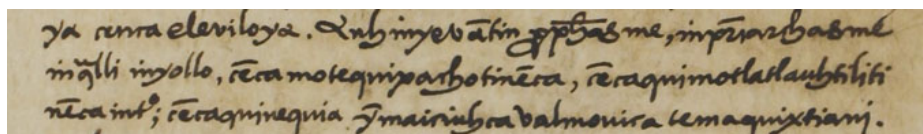 ya cenca eleviloya. Auh inyevãtin ꝓphãsme, inpr̃iarchasme
inq̃lli inyollo, cẽca motequipachotinẽca, cẽcaquimotlatlauhtiliti
nẽca intº; cẽcaquinequia ỹmaiciuhca valmovica temaquixtiani.